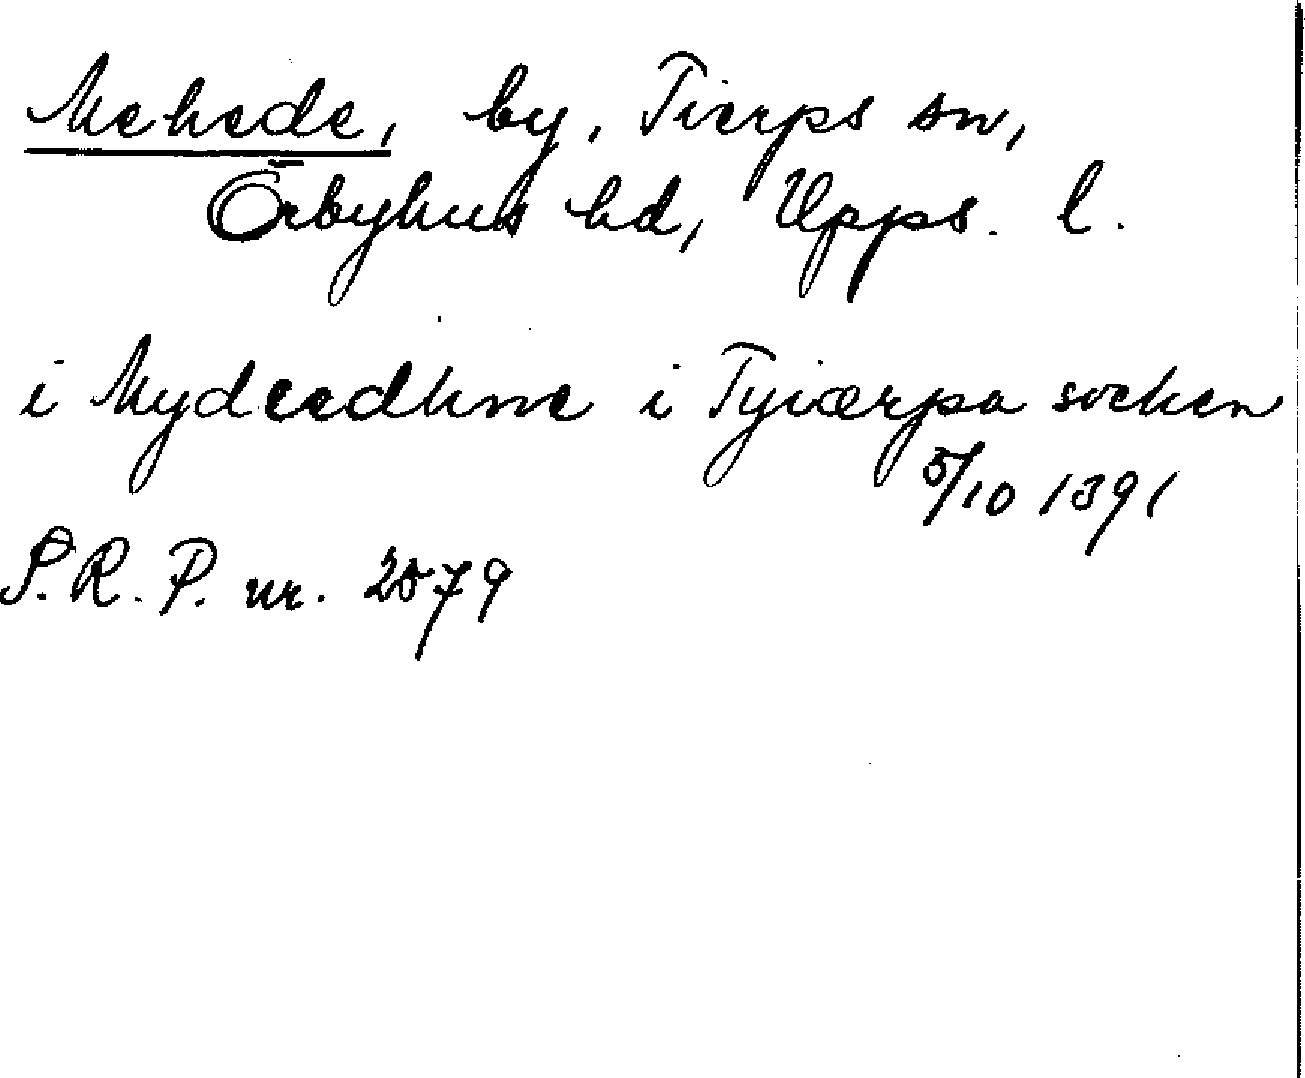 Mehede, by, Tierps sn,
Örbyhus hd, Upps. l.
i Mydeedhme i Tyiærpa socken
5/10 1391
S.R.P. nr. 2579